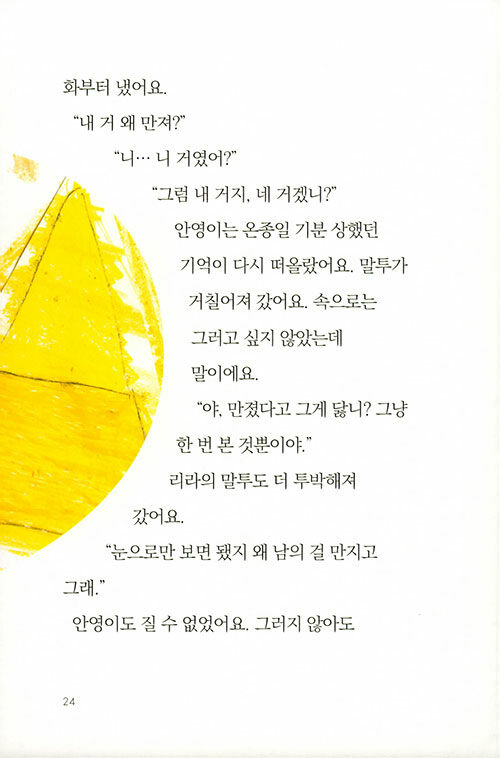 화부터 냈어요.
“내 거 왜 만져?”
“니… 니 거였어?”
“그럼 내 거지, 네 거겠니?”
안영이는 온종일 기분 상했던
기억이 다시 떠올랐어요. 말투가
거칠어져 갔어요. 속으로는
그러고 싶지 않았는데
말이에요.
“야, 만졌다고 그게 닳니? 그냥
한 번 본 것뿐이야.”
리라의 말투도 더 투박해져
갔어요.
“눈으로만 보면 됐지 왜 남의 걸 만지고
그래.”
안영이도 질 수 없었어요. 그러지 않아도
24